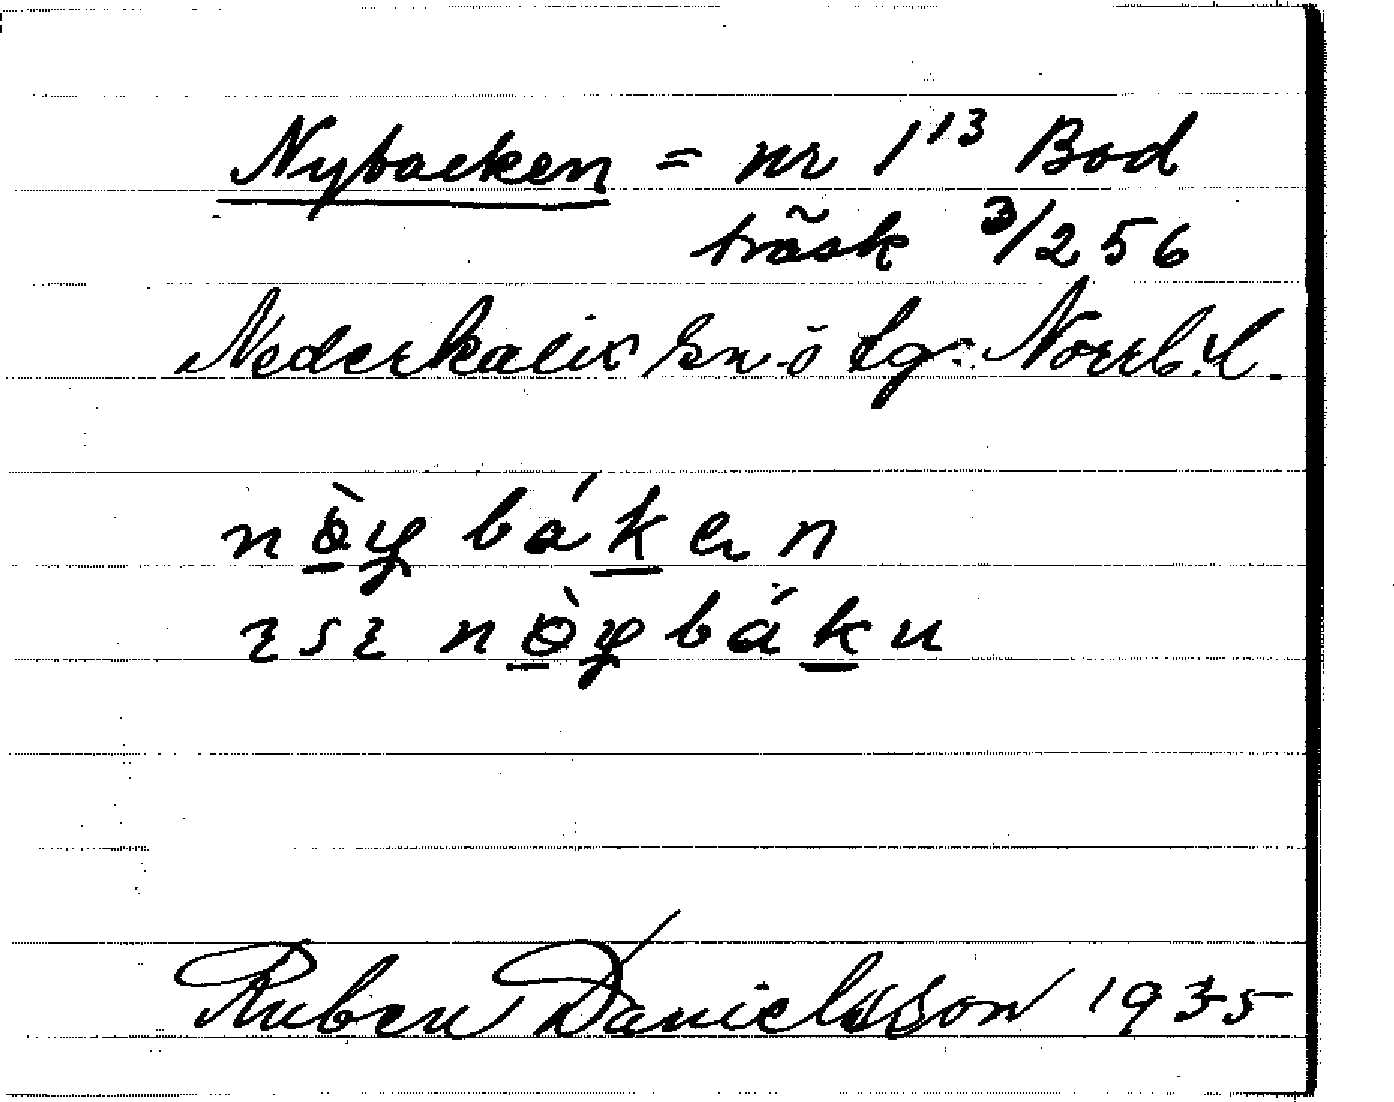 Nybacken = nr 1¹³ Bod
träsk 3/256
Nederkalix sn ö tg: Norrb. l.
nö̀y báken
nö̀ybáku
Ruben Danielsson 1935